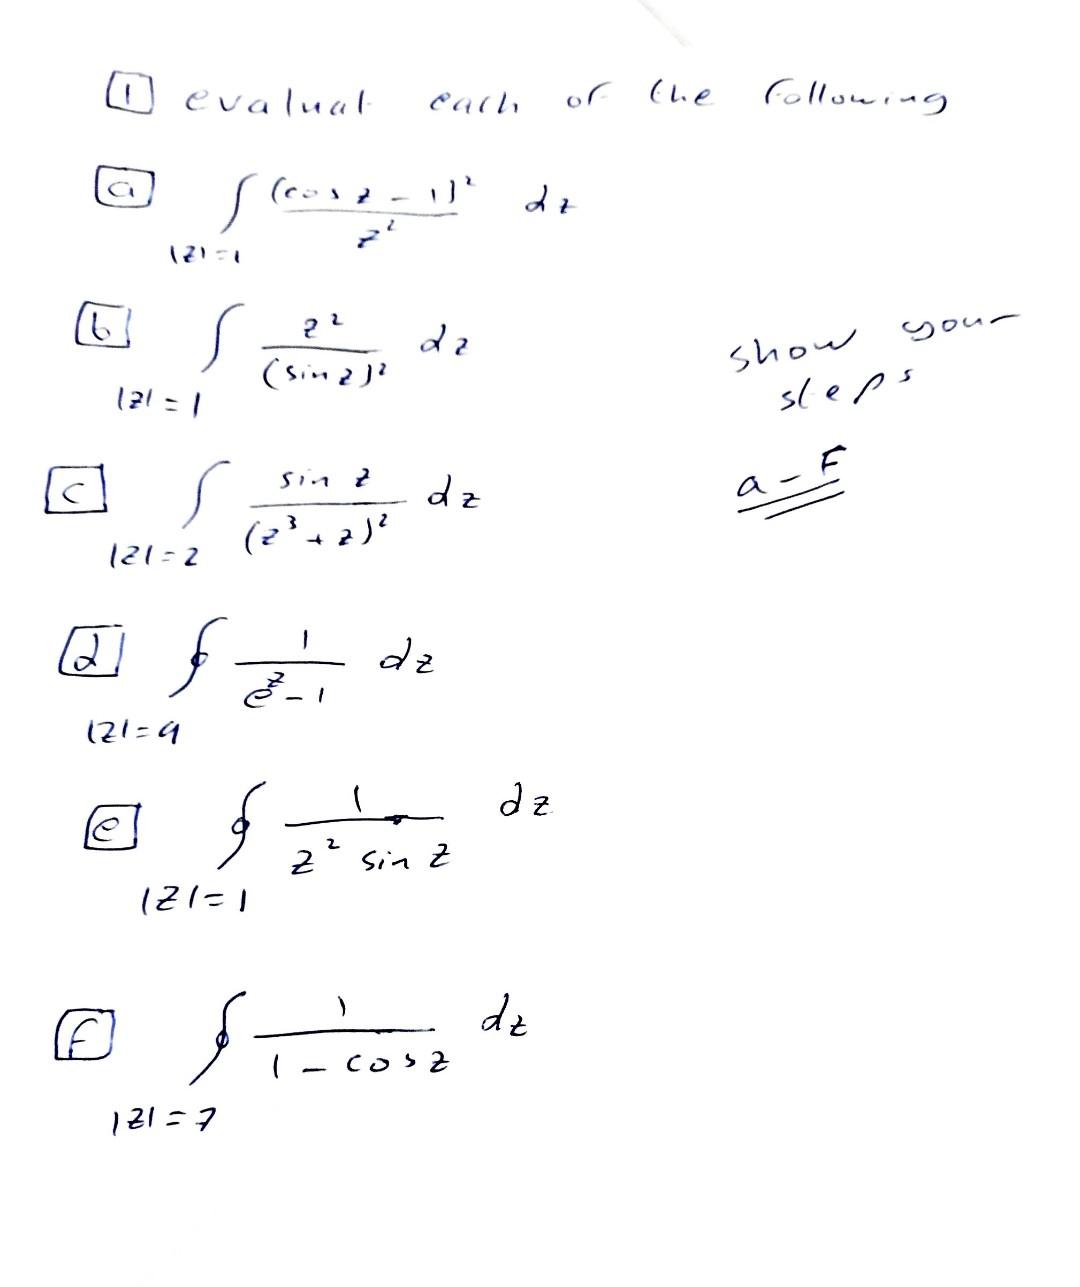 1 evaluat each of the following
a ∫ (cos z - 1)² / z² dz
|z|=1
b ∫ z² / (sin z)² dz
|z|=1
show your
steps
a-F
c ∫ sin z / (z³ + z)² dz
|z|=2
d ∮ 1 / e^z - 1 dz
|z|=9
e ∮ 1 / z² sin z dz
|z|=1
F ∮ 1 / 1 - cos z dz
|z|=7